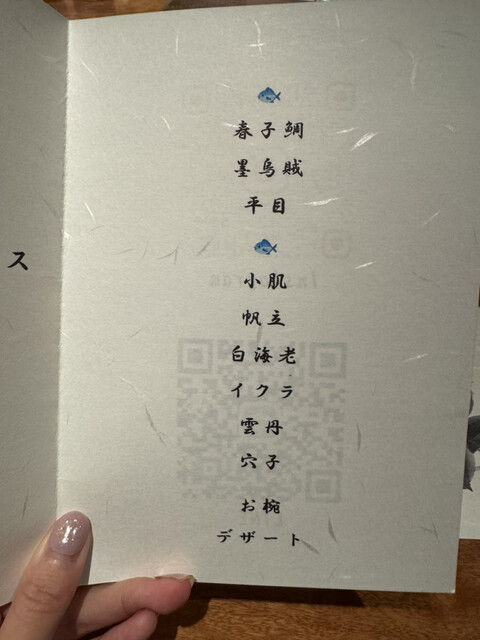 春子鯛
墨烏賊
平目
小肌
帆立
白海老
イクラ
雲丹
穴子
お椀
デザート
ス